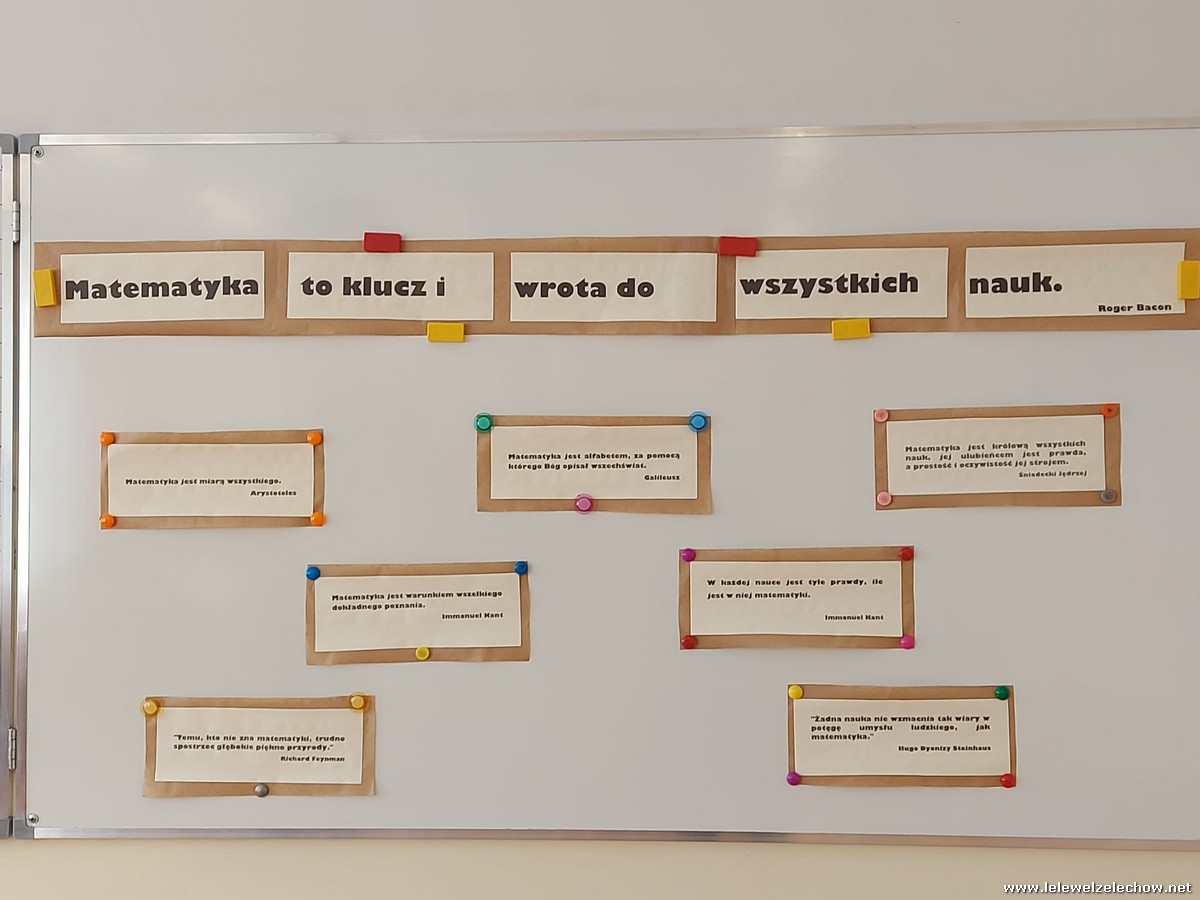 Matematyka to klucz i wrota do wszystkich nauk.
Roger Bacon
Matematyka jest miarą wszystkiego.
Arystoteles
Matematyka jest alfabetem, za pomocą
którego Bóg opisał wszechświat.
Galileusz
Matematyka jest królową wszystkich
nauk, jej ulubieńcem jest prawda,
a prostość i oczywistość jej strojem.
Śniadecki Jędrzej
Matematyka jest warunkiem wszelkiego
dokładnego poznania.
Immanuel Kant
W każdej nauce jest tyle prawdy, ile
jest w niej matematyki.
Immanuel Kant
"Temu, kto nie zna matematyki, trudno
spostrzec głębokie piękno przyrody."
Richard Feynman
"Żadna nauka nie wzmacnia tak wiary w
potęgę umysłu ludzkiego, jak
matematyka."
Hugo Dyonizy Steinhaus
www.lelewelzelechow.net